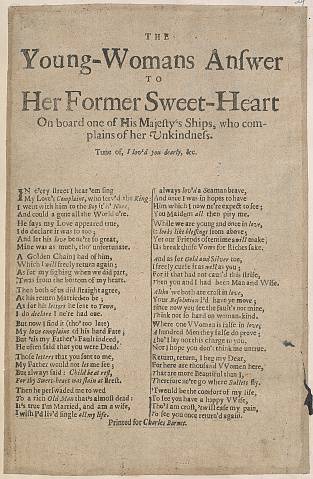 THE
Young-Womans Answer
TO
Her Former Sweet-Heart
On board one of His Majesty's Ships, who com-
plains of her Unkindness.
Tune of, I lov'd you dearly, &c.
IN e'ery street I hear 'em sing
My Love's Complaint, who serv'd the King:
I went with him to the Bay
and could a gone all the World o're.
He says my Love appeared true,
I do declare it was so too;
And for his love bene're so great,
Mine was as much, tho' unfortunate.
A Golden Chain had of him,
Which I will freely return again;
As for my sighing when we did part,
Twas from the bottom of my heart.
Then both of us did straight agree,
At his return Married to be;
As for his letters he sent to Town,
I do declare I ne're had one.
But now I find it (tho' too late)
My love complains of his hard Fate;
But 'tis my Father's Fault indeed,
He often said that you were Dead.
Those letters that you sent to me,
My Father would not let me see;
But always said: Child be at rest,
For thy Sweet-heart was slain at Brest.
Then he perswaded me to wed
To a rich Old Man that's almost dead:
It's true I'm Married, and am a wife,
I wish I'd liv'd single all my life.
I always lov'd a Seaman brave,
And once I was in hopes to have
Him which I now ne're expect to see;
You Maidens all then pity me.
While we are young and once in love,
It looks like blessings from above;
Yet our Friends oftentimes will make
Us break those Vows for Riches sake.
And as for Gold and Silver too,
I freely could it as well as you;
For if that had not caus'd this strife,
Then you and I had been Man and Wife.
Altho' we both are crost in love,
Your Resolution I'd have ye move;
since now you see the fault's not mine,
Think not so hard on woman-kind.
Where one VVoman is false in love,
A hundred Men they false do prove;
tho' I lay not this charge to you,
Nor I hope you don't think me untrue.
Return, return, I beg my Dear,
For here are thousand VVomen here,
That are more Beautiful than I,
Therefore ne're go where Bullets fly.
'Twould be the comfort of my life,
To see you have a happy VVife,
Tho' I am crost, 'twill ease my pain,
To see you once return'd again.
Printed for Charles Barnet.